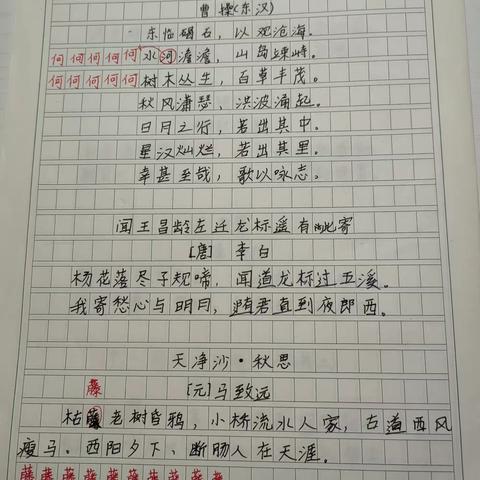 曹操(东汉)
东临碣石，以观沧海。
何何何何何水河澹澹，山岛竦峙。
何何何何何树木丛生，百草丰茂。
秋风潇瑟，洪波涌起。
日月之行，若出其中。
星汉灿烂，若出其里。
幸甚至哉，歌以咏志。
闻王昌龄左迁龙标遥有此寄
[唐] 李白
杨花落尽子规啼，闻道龙标过五溪。
我寄愁心与明月，随君直到夜郎西。
天净沙·秋思
藤
[元]马致远
枯藤老树昏鸦，小桥流水人家，古道西风
瘦马。西阳夕下、断肠人在天涯。
藤藤藤藤藤藤藤藤藤藤